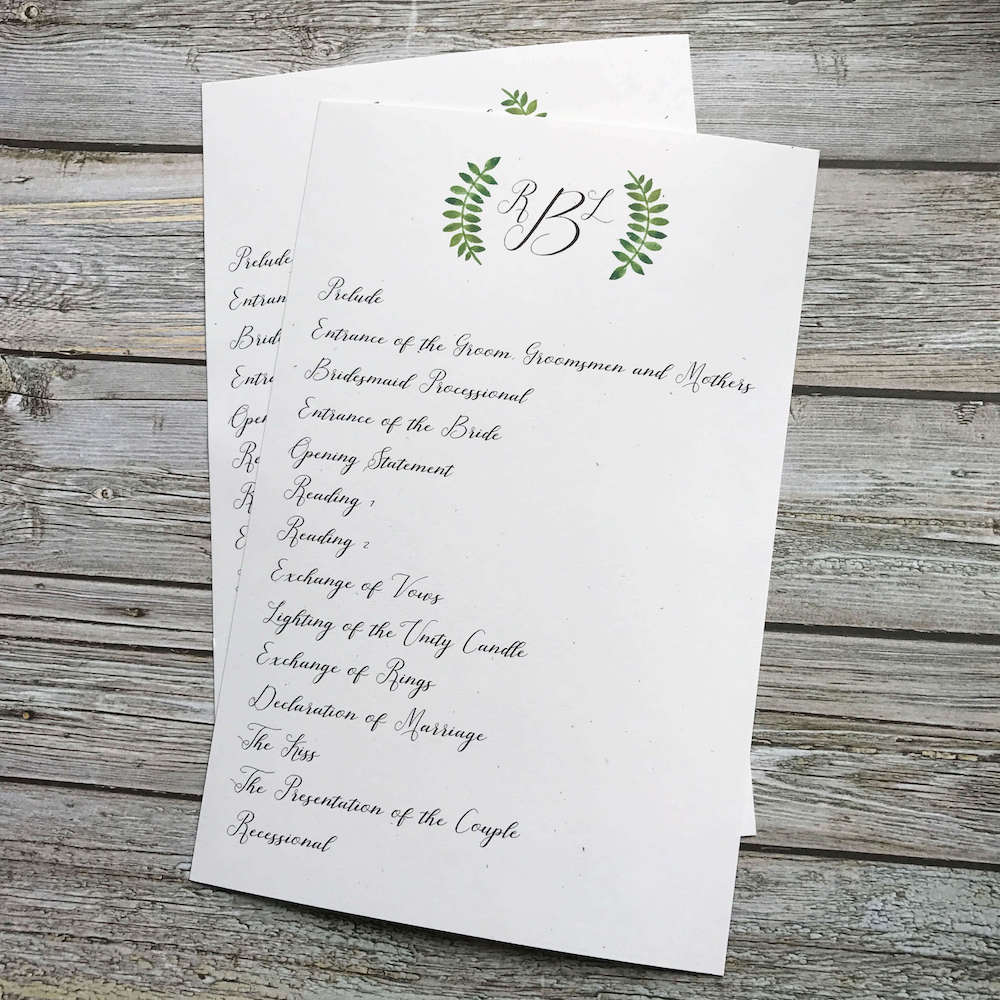 R B L
Prelude
Entrance of the Groom, Groomsmen and Mothers
Bridesmaid Processional
Entrance of the Bride
Opening Statement
Reading 1
Reading 2
Exchange of Vows
Lighting of the Unity Candle
Exchange of Rings
Declaration of Marriage
The Kiss
The Presentation of the Couple
Recessional
Prelude
Entran
Brid
Entra
Open
Re
R
E